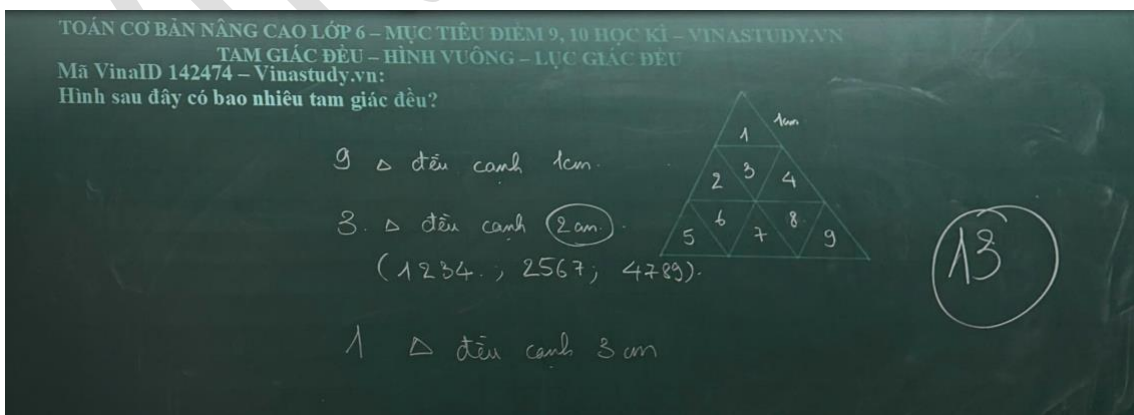 TOÁN CƠ BẢN NÂNG CAO LỚP 6 – MỤC TIÊU ĐIỂM 9, 10 HỌC KÌ – VINASTUDY.VN
TAM GIÁC ĐỀU – HÌNH VUÔNG – LỤC GIÁC ĐỀU
Mã VinaID 142474 – Vinastudy.vn:
Hình sau đây có bao nhiêu tam giác đều?
1cm
1
9 Δ đều cạnh 1cm.
2 3 4
3. Δ đều cạnh 2cm.
5 6 7 8 9
(1234., 2567; 4789).
13
1 Δ đều cạnh 3 cm